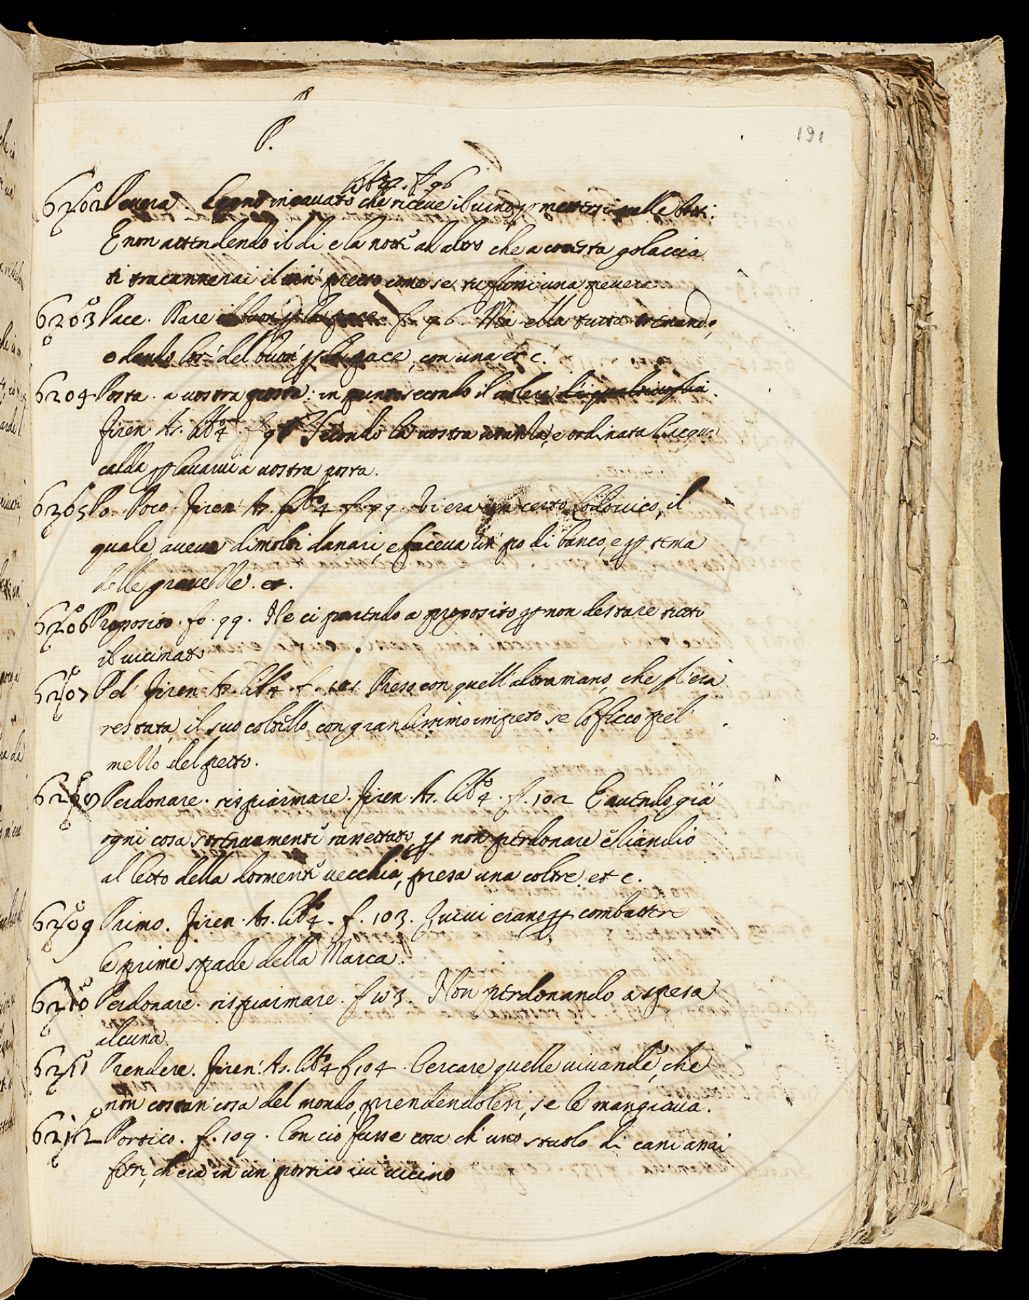 P.
191
lib. 4. f. 96
6202 Pevera. Legno incavato che riceve il vino p mettersi nelle botti:
E non attendendo il dì e la notte ad altro che a cotesta golaccia
ti tracannerai il vin pretto, come se tu fossi una pevera.
6203 Pace. Dare f. 96. Ma ella tutta tremando,
e dando loro del buon p la pace, con una et c.
6204 Posta. a vostra posta: in punto secondo il volere di qualsivoglia
Firen. As. lib. 4. f. 98 Secondo la vostra usanza, è ordinata l'acqua
calda p lavarvi a vostra posta.
6205 Po. Poco. Firen. As. lib. 4. f. 99. Vi era un certo Lodovico, il
quale aveva dimolti danari, e faceva un po di banco, e p tema
delle gravezze. et.
6206 Proposito. fo. 99. Ne ci parendo a proposito p non destare tutto
il vicinato
6207 Pel. Firen. As. lib. 4. f. 101 Preso con quell'altra mano, che gl'era
restata, il suo coltello, con grandissimo impeto se lo ficcò pel
mezzo del petto.
6208 Perdonare. risparmiare. Firen. As. lib. 4. f. 102 E avendo già
ogni cosa strenuamente rassettato, p non perdonare eziandio
al letto della dormente vecchia, presa una coltre et c.
6209 Primo. Firen. As. lib. 4. f. 103. Quivi erano p combattere
le prime spade della Marca.
6210 Perdonare. risparmiare. f. 103. Non perdonando a spesa
alcuna.
6211 Prendere. Firen. As. lib. 4 f. 104. Cercare quelle vivande, che
non costan cosa del mondo, prendendolesi, se le mangiava.
6212 Portico. f. 109. Con ciò fusse cosa ch'uno stuolo di cani assai
forti, ch'era in un portico ivi vicino